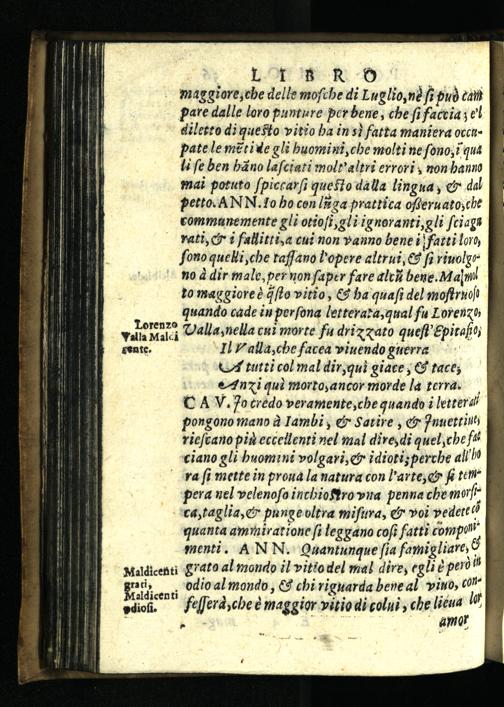 LIBRO
maggiore, che delle mosche di Luglio, nè si può cam
pare dalle loro punture per bene, che si faccia; e'l
diletto di questo vitio ha in sì fatta maniera occu-
pate le mẽti de gli huomini, che molti ne sono, ĩ qua
li se ben hãno lasciati molt'altri errori, non hanno
mai potuto spiccarsi questo dalla lingua, & dal
petto. ANN. Io ho con lũga prattica osseruato, che
communemente gli otiosi, gli ignoranti, gli sciagu
rati, & i fallitti, a cui non vanno bene i fatti loro,
sono quelli, che tassano l'opere altrui, & si riuolgo-
no à dir male, per non saper fare altrũ bene. Ma mol
to maggiore è q̃sto vitio, & ha quasi del mostruoso
quando cade in persona letterata, qual fu Lorenzo
Lorenzo
Valla Maldi
cente.
Valla, nella cui morte fu drizzato quest'Epitafio,
Il Valla, che facea viuendo guerra
A tutti col mal dir, quì giace, & tace;
Anzi quì morto, ancor morde la terra.
CAV. Io credo veramente, che quando i letterati
pongono mano à Iambi, & Satire, & Inuettiue,
riescano più eccellenti nel mal dire, di quel, che fac
ciano gli huomini volgari, & idioti; perche all'ho
ra si mette in proua la natura con l'arte, & si tem-
pera nel velenoso inchiostro vna penna che morsi-
ca, taglia, & punge oltra misura, & voi vedete cõ
quanta ammiratione si leggano così fatti componi-
menti. ANN. Quantunque sia famigliare, &
Maldicenti
grati,
Maldicenti
odiosi.
grato al mondo il vitio del mal dire, egli è però in
odio al mondo, & chi riguarda bene al viuo, con-
fesserà, che è maggior vitio di colui, che lieua lor
amor